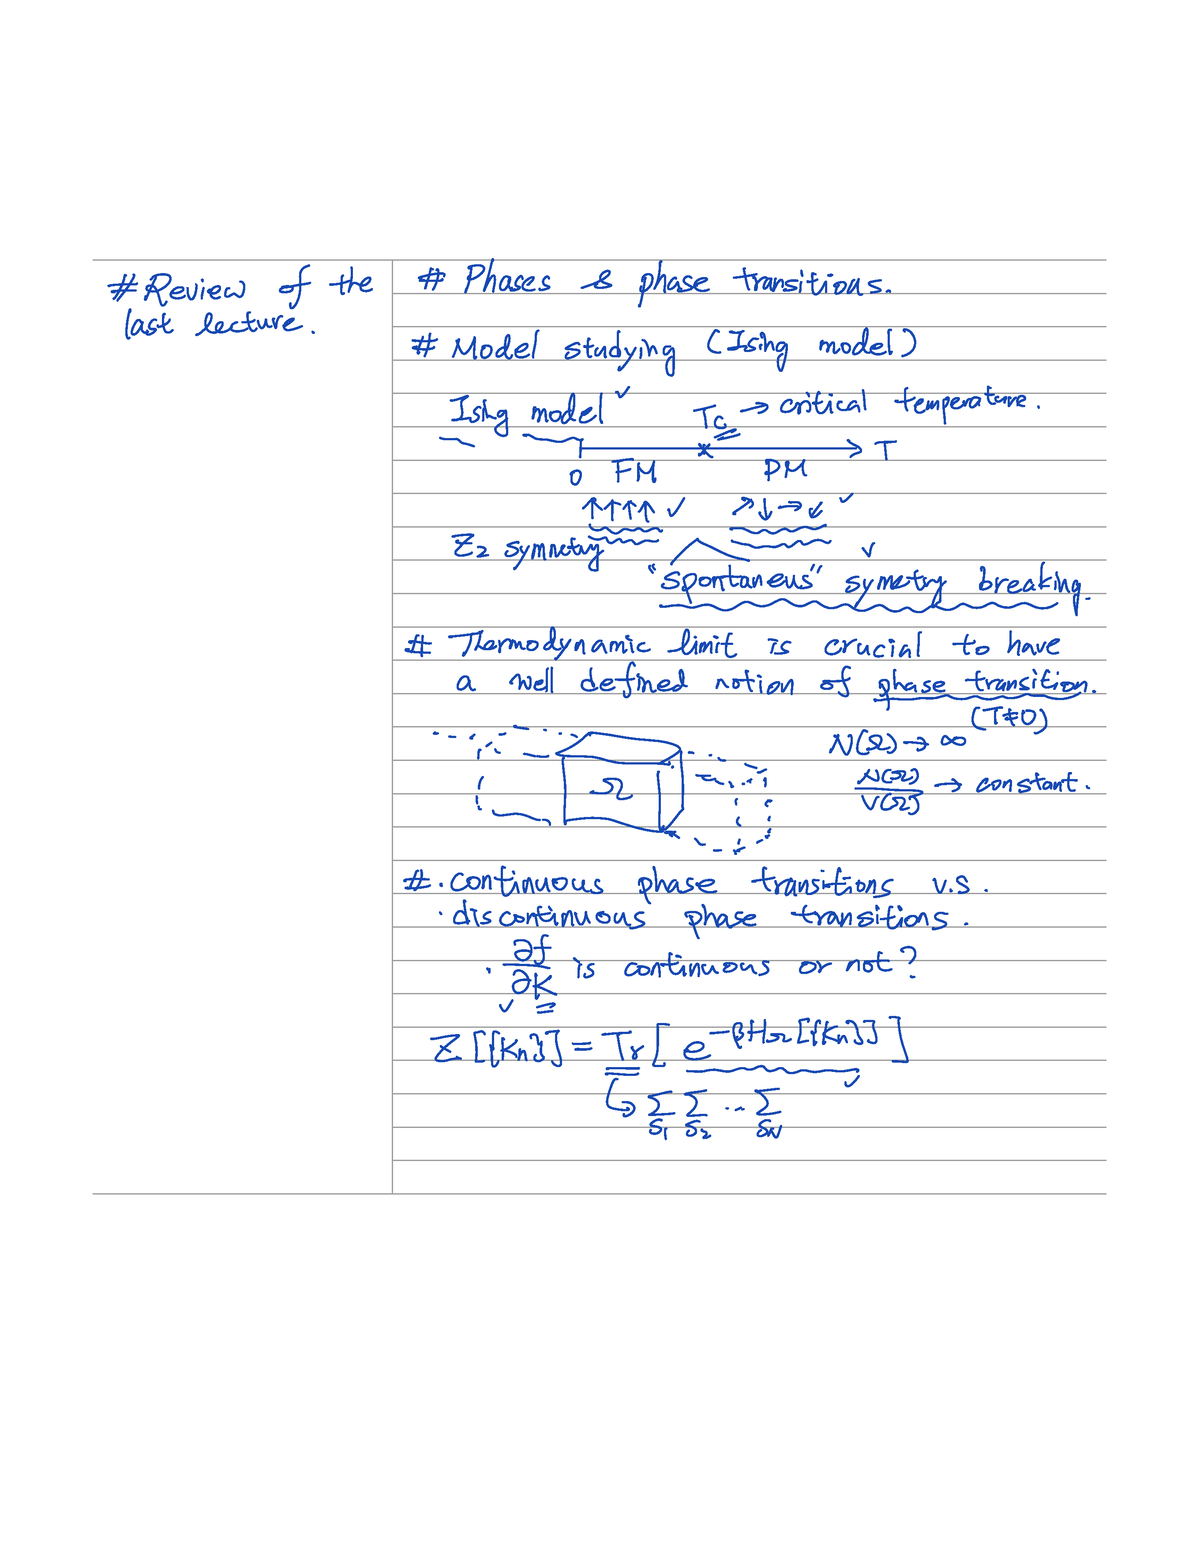 # Review of the
last lecture.
# Phases & phase transitions.
# Model studying (Ising model)
Ising model ✓ Tc → critical temperature.
T
0 FM PM
↑↑↑↑ ✓ ↗↓→↙ ✓
Z2 symmetry
"spontaneus" symetry breaking.
# Thermodynamic limit is crucial to have
a well defined notion of phase transition.
(T≠0)
N(Ω) → ∞
Ω
N(Ω)/V(Ω) → constant.
#. continuous phase transitions v.s.
· discontinuous phase transitions.
· ∂f/∂K is continuous or not?
Z[{Kn}] = Tr[e^{-βHΩ[{Kn}]}]
↳ Σ_{S1} Σ_{S2} ... Σ_{SN}